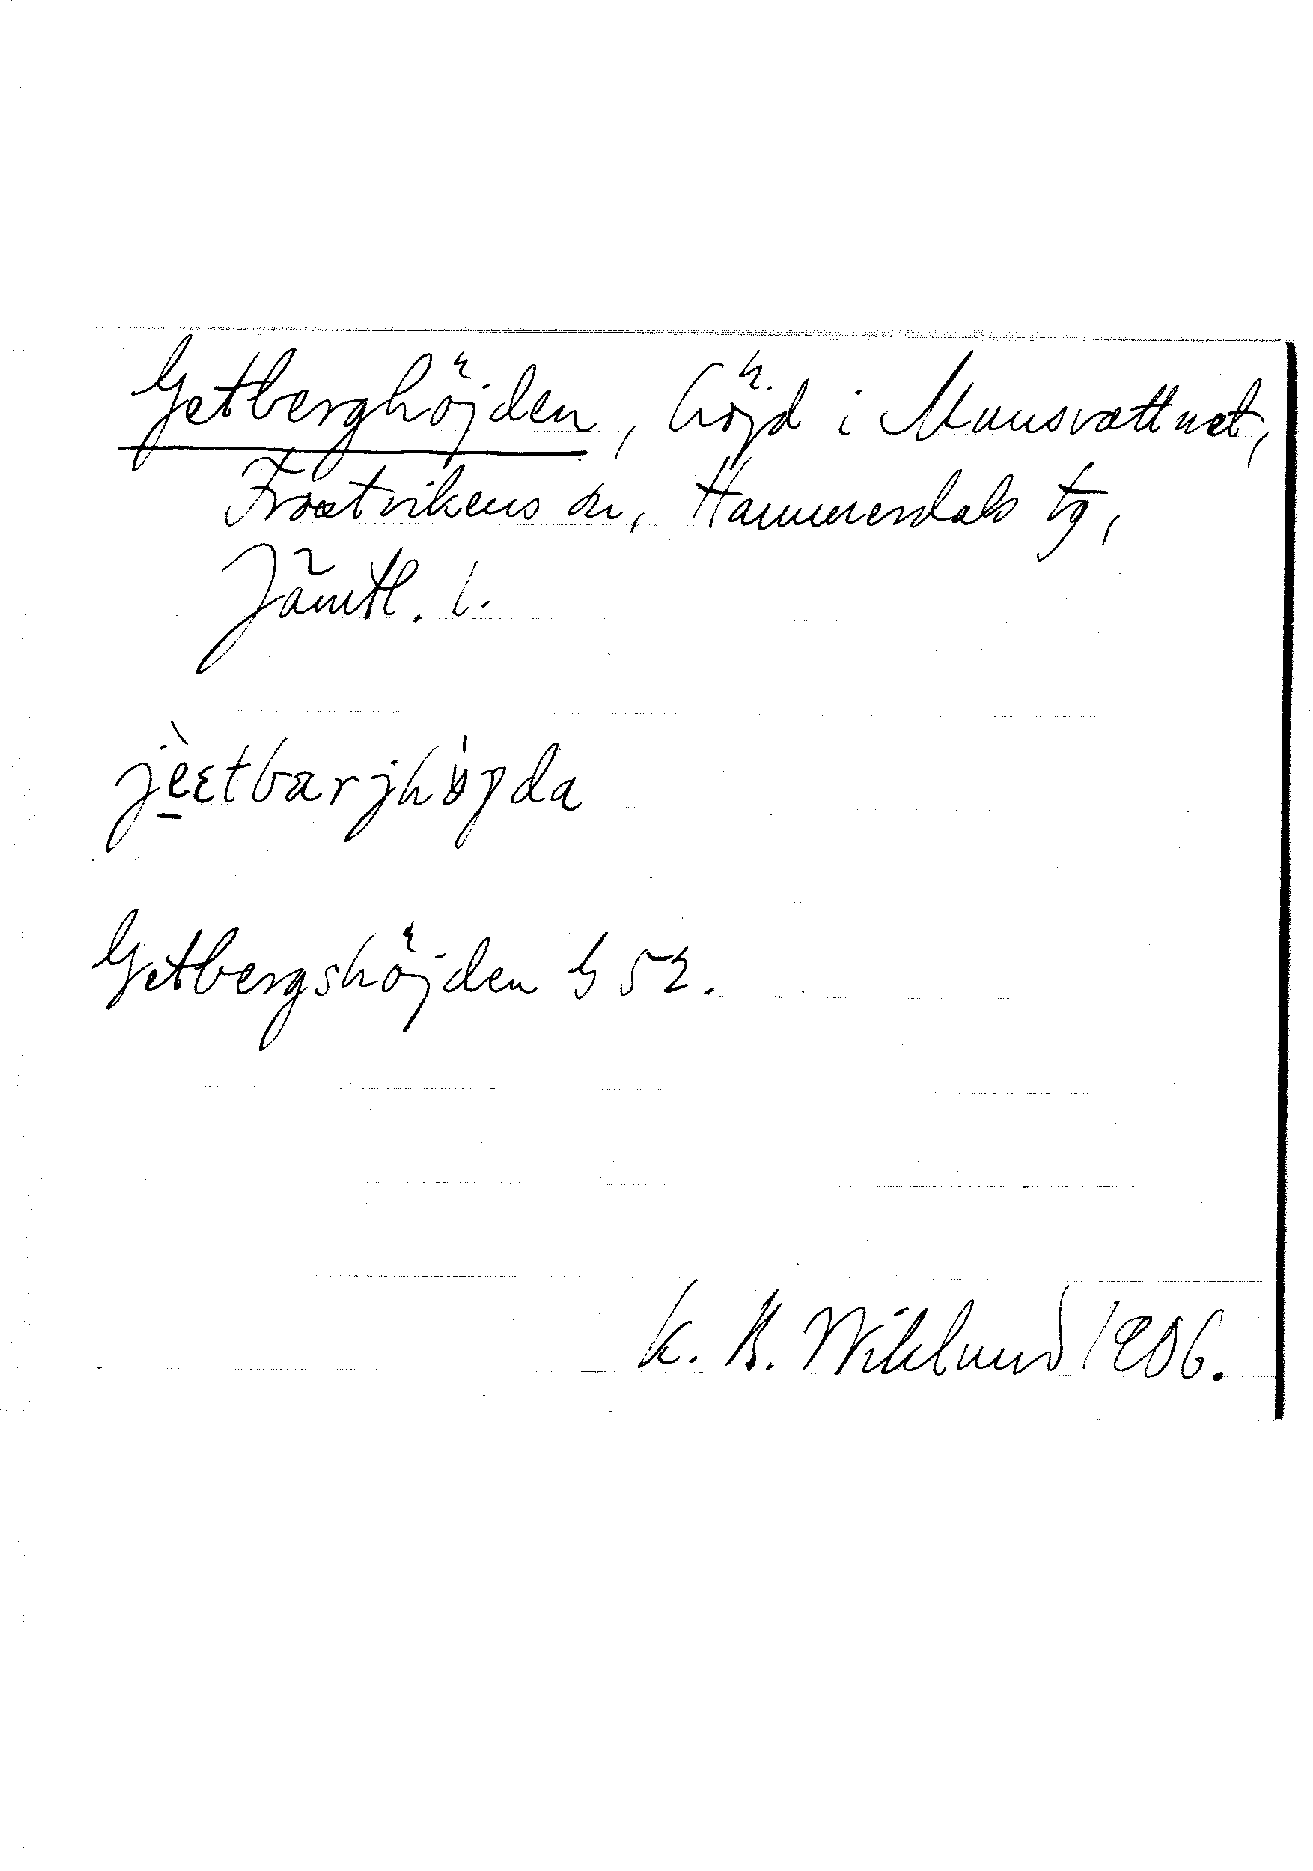 Getberghöjden, höjd i Mansvattnet,
Frostvikens sn, Hammerdals tg,
Jämtl. l.
jèɛtbærjhöjda
Getbergshöjden G 52.
K. B. Wiklund 1906.